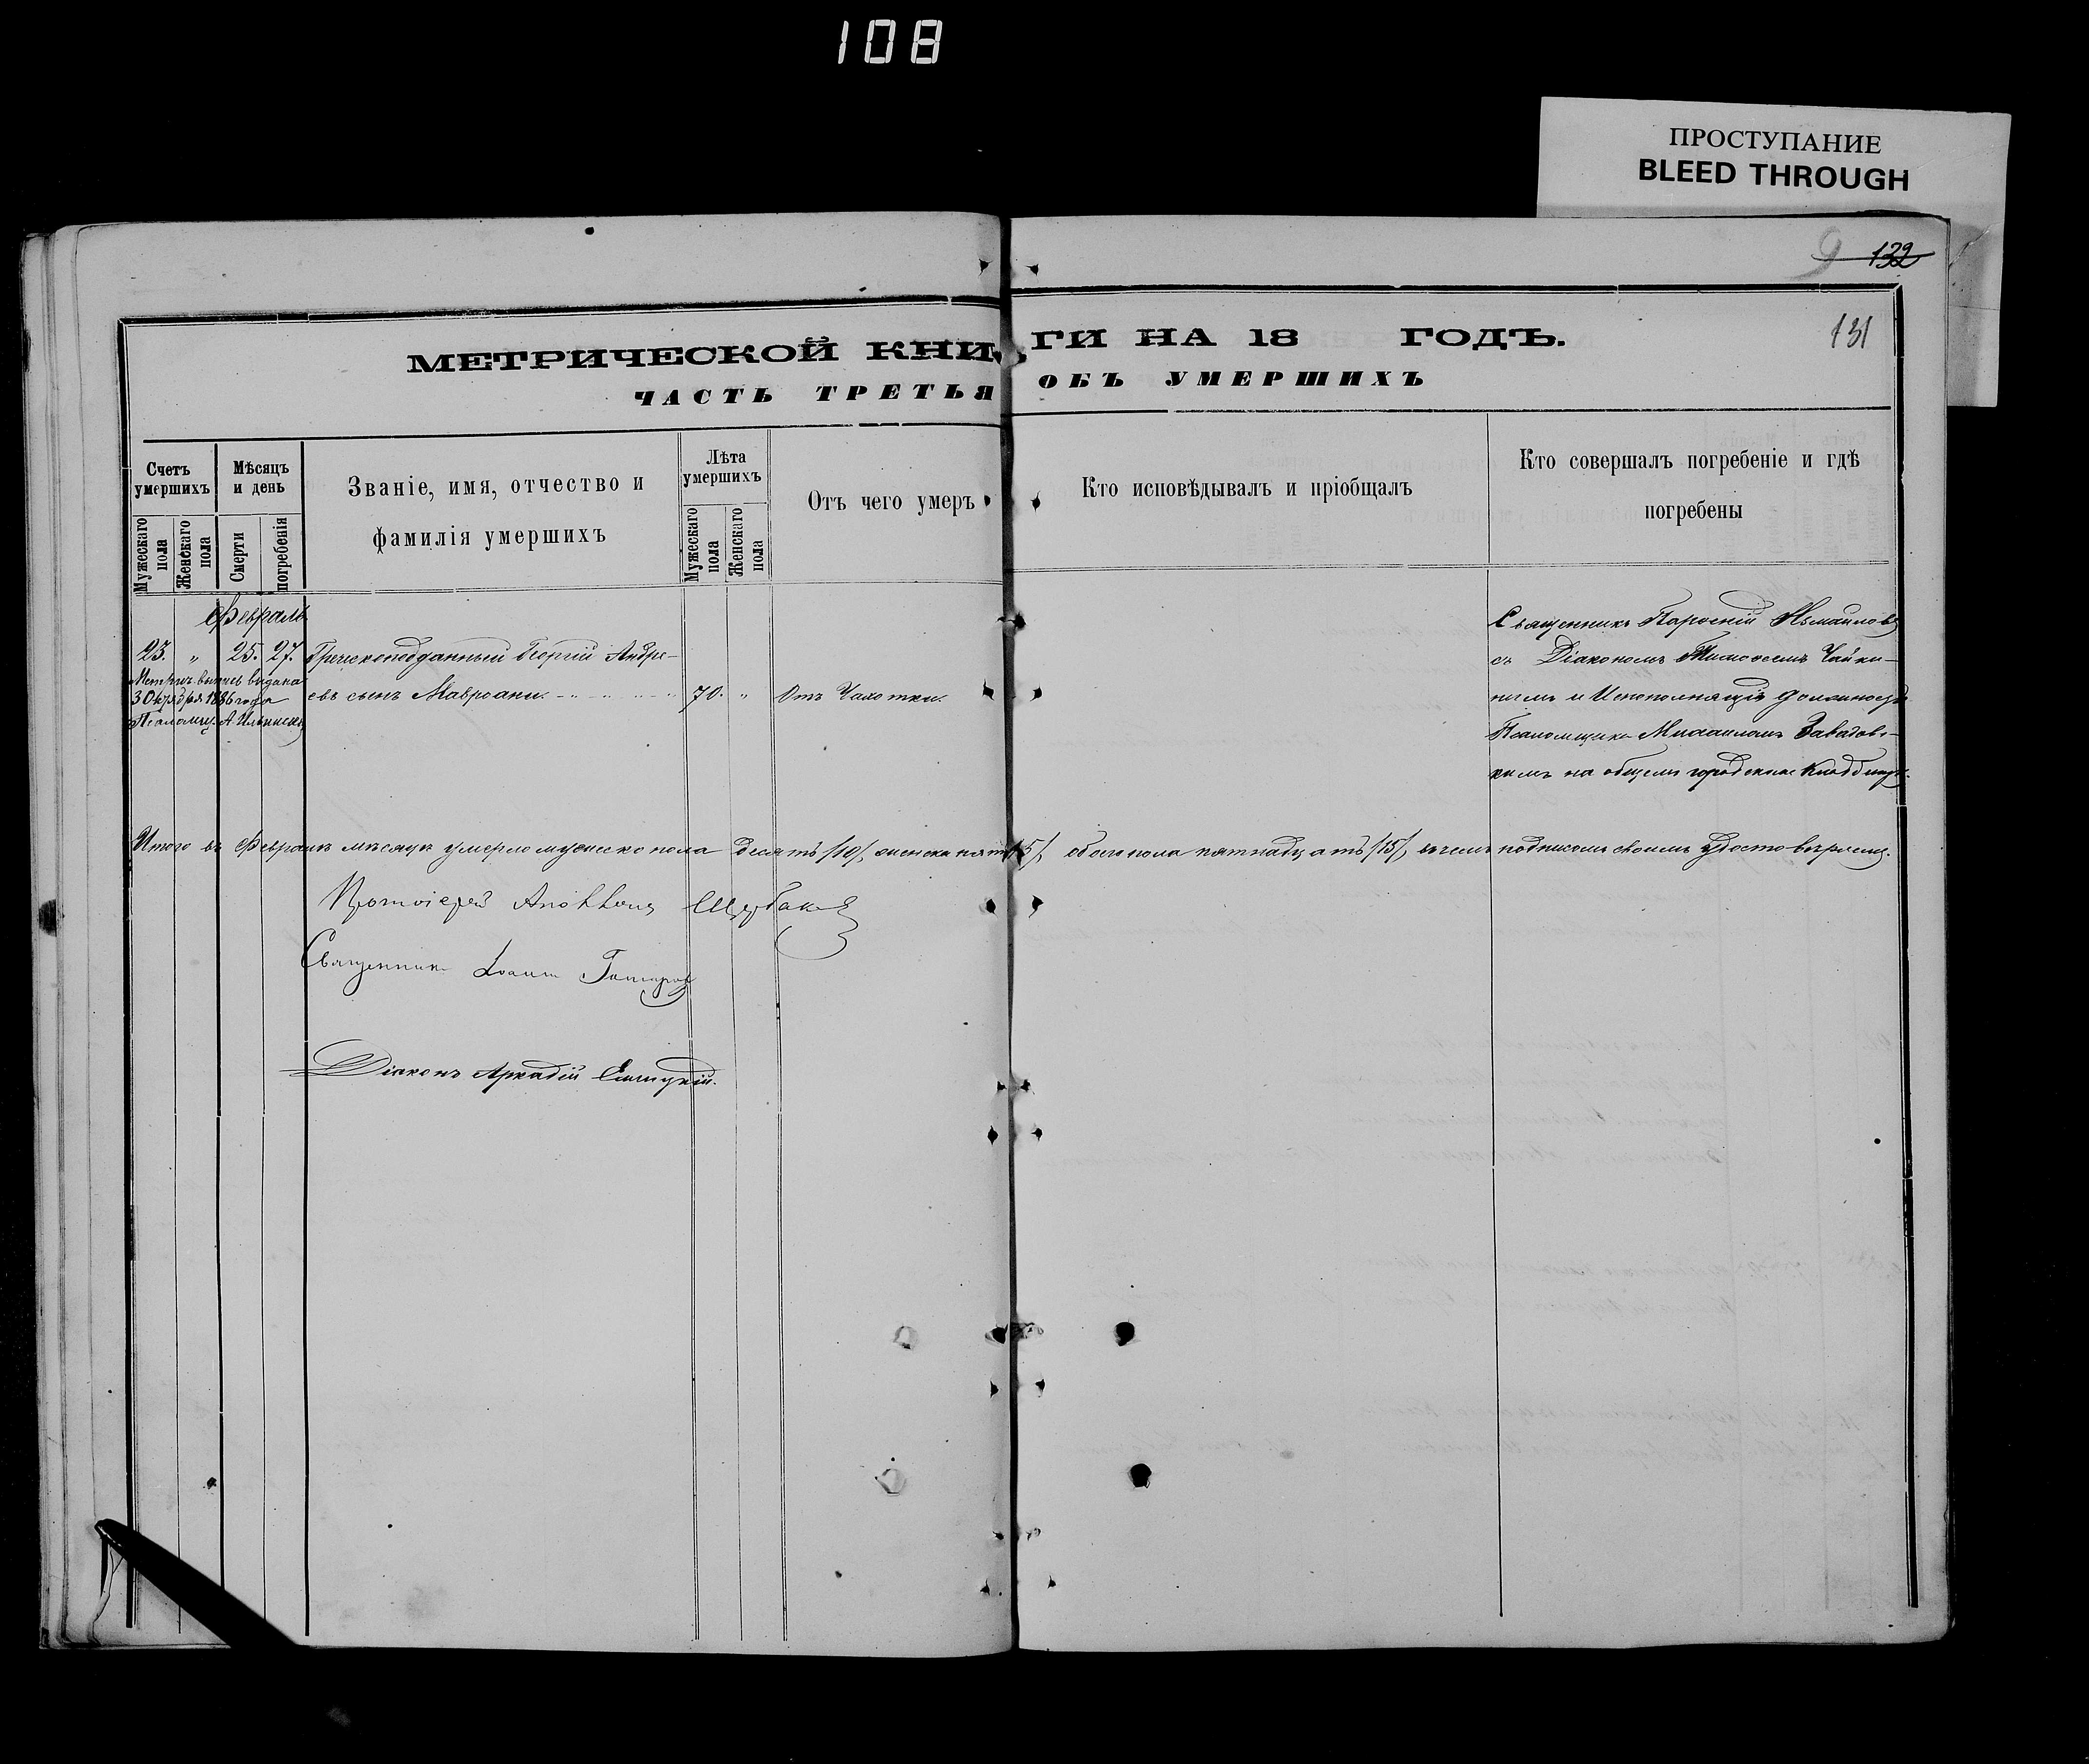 108
ПРОСТУПАНИЕ
BLEED THROUGH
9 132
131
МЕТРИЧЕСКОЙ КНИГИ НА 18 ГОДЪ.
ЧАСТЬ ТРЕТЬЯ ОБЪ УМЕРШИХЪ
Счетъ умершихъ
Мужескаго пола
Женскаго пола
Мѣсяцъ и день
Смерти
погребенія
Званіе, имя, отчество и
фамилія умершихъ
Лѣта умершихъ
Мужескаго пола
Женскаго пола
Отъ чего умеръ
Кто исповѣдывалъ и пріобщалъ
Кто совершалъ погребеніе и гдѣ
погребены
Февраль
23. „ 25. 27. Греческоподданный Георгій Андре-
евъ сынъ Мавроани. 70. „ Отъ Чахотки.
Метрич. выпись выдана
30 1886 года
Псаломщ. А.
Священникъ
съ Діакономъ Чайки-
нымъ и Исполняющій должность
Псаломщика Михаиломъ Завадов-
кимъ на общемъ городскомъ кладбищѣ.
Итого въ Февралѣ мѣсяцѣ умерло мужеско пола десять /10/, женска пять /5/, обоего пола пятнадцать /15/, въ чемъ подписомъ своимъ удостовѣряемъ.
Протоіерей Щербаковъ
Священникъ Іоаннъ
Діаконъ Аркадій